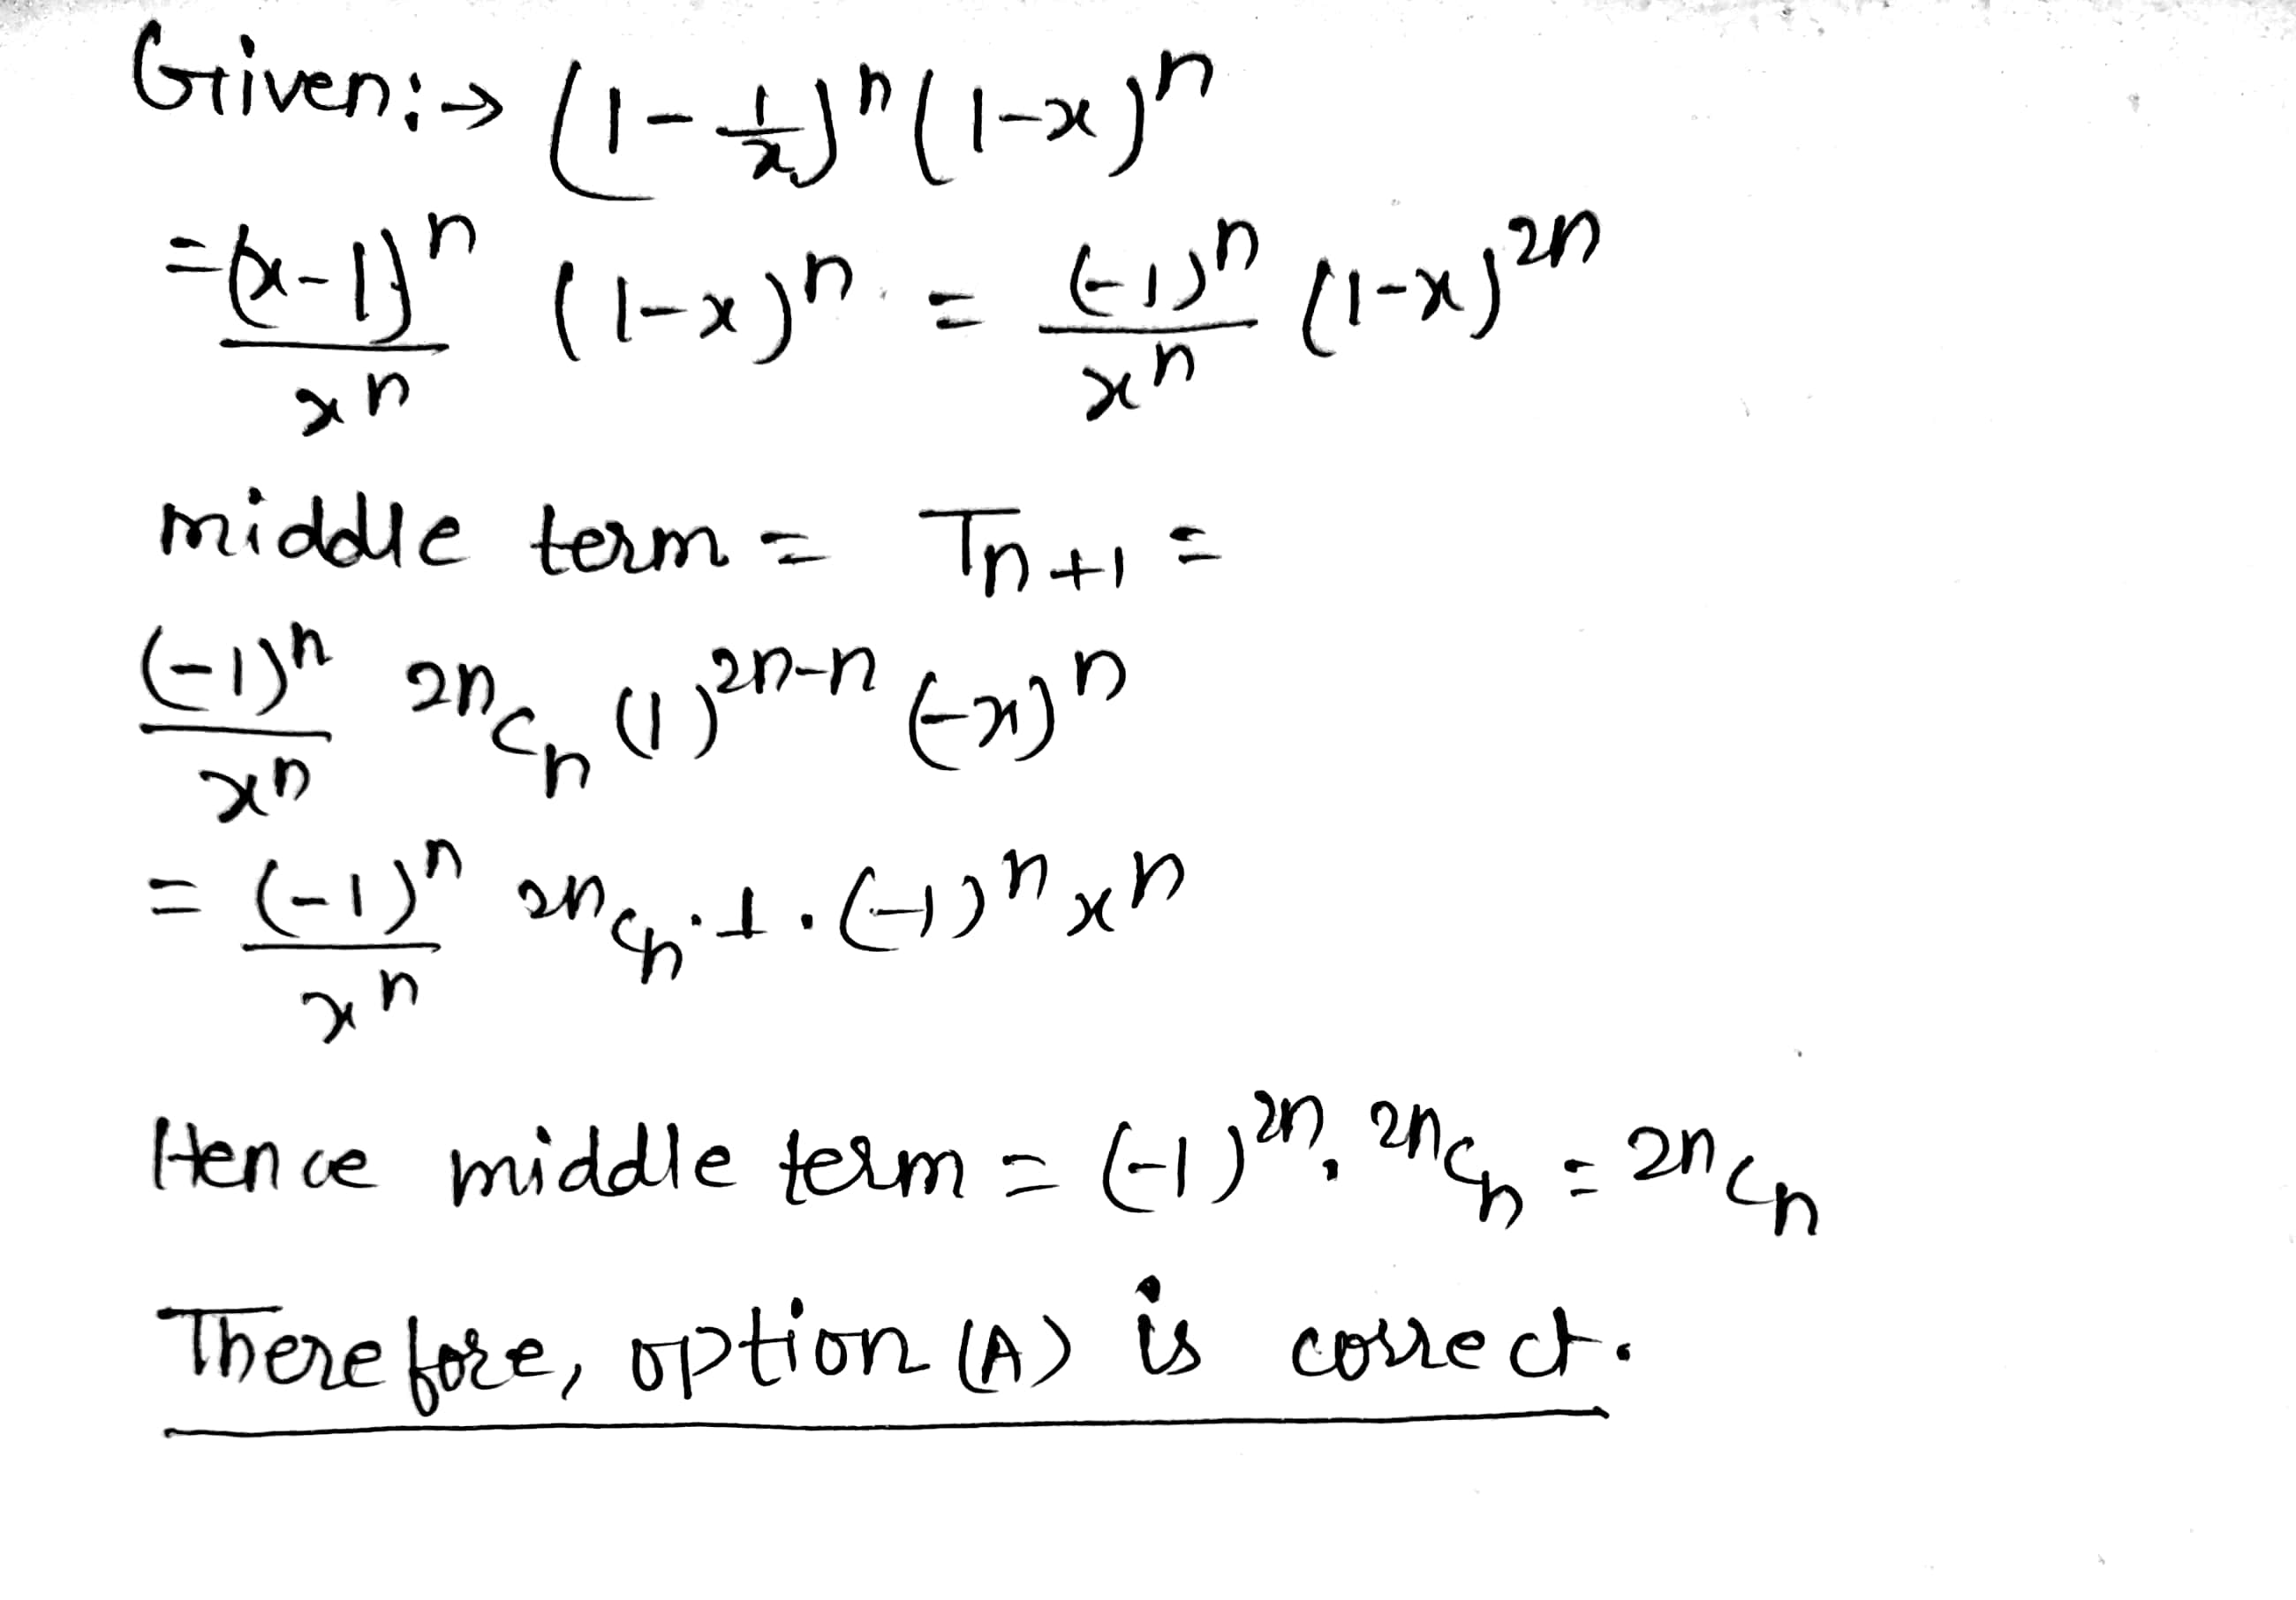 Given:→ (1 - 1/x)^n (1-x)^n
= (x-1)^n / x^n (1-x)^n = (-1)^n / x^n (1-x)^2n
middle term = T_n+1 =
(-1)^n / x^n 2nC_n (1)^2n-n (-x)^n
= (-1)^n / x^n 2nC_n · 1 · (-1)^n x^n
Hence middle term = (-1)^2n · 2nC_n = 2nC_n
Therefore, option (A) is correct.